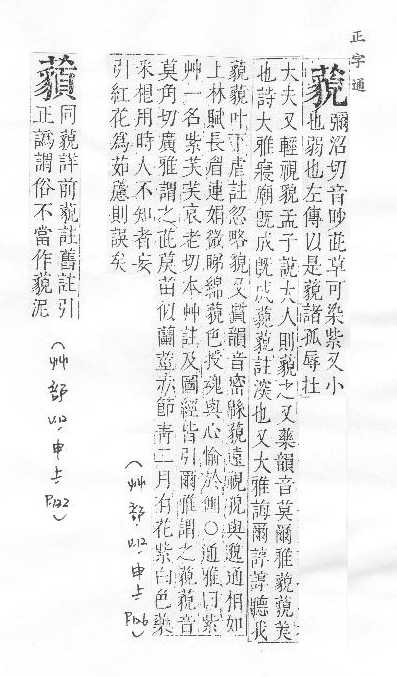 正字通
藐
彌沼切音眇茈草可染紫又小
也弱也左傳以是藐諸孤辱在
大夫又輕視貌孟子說大人則藐之又藥韻音莫爾雅藐藐美
也詩大雅寢廟旣成旣成藐藐註深也又大雅誨爾諄諄聽我
藐藐叶下虐註忽略貌又質韻音密緜藐遠視貌與邈通相如
上林賦長眉連娟微睇綿藐色授魂與心愉於側○通雅曰紫
艸一名紫芺芺哀老切本艸註及圖經皆引爾雅謂之藐藐音
莫角切廣雅謂之茈莫苗似蘭莖赤節靑二月有花紫白色藥
釆想用時人不知者妄
引紅花爲茹藘則誤矣
(艸部 U12,申上 P.126)
同藐詳前藐註舊註引
正譌謂俗不當作藐泥
(艸部 U12,申上 P.122)